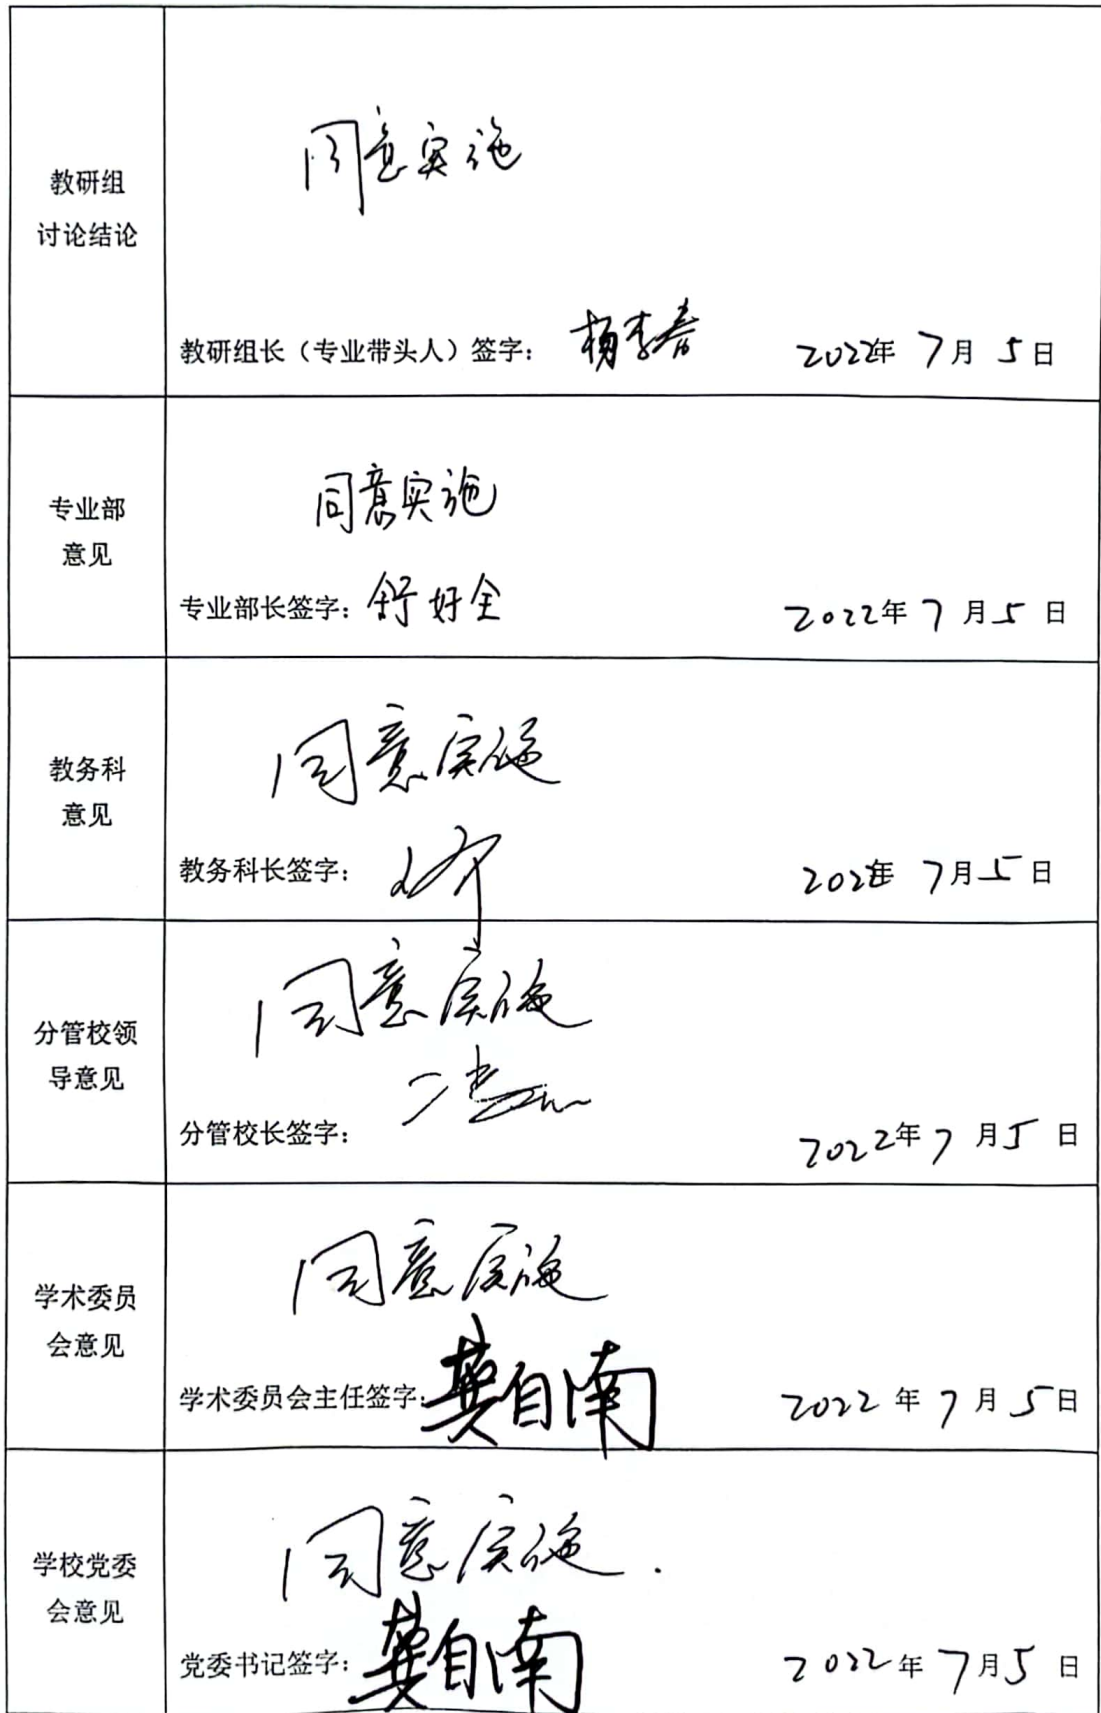 教研组
讨论结论
同意实施
教研组长（专业带头人）签字： 杨李春 2022年 7月 5日
专业部
意见
同意实施
专业部长签字：舒好全 2022年 7月5日
教务科
意见
同意实施
教务科长签字： 2022年 7月5日
分管校领
导意见
同意实施
分管校长签字： 2022年7月5日
学术委员
会意见
同意实施
学术委员会主任签字：龚自南 2022年7月5日
学校党委
会意见
同意实施.
党委书记签字：龚自南 2022年7月5日